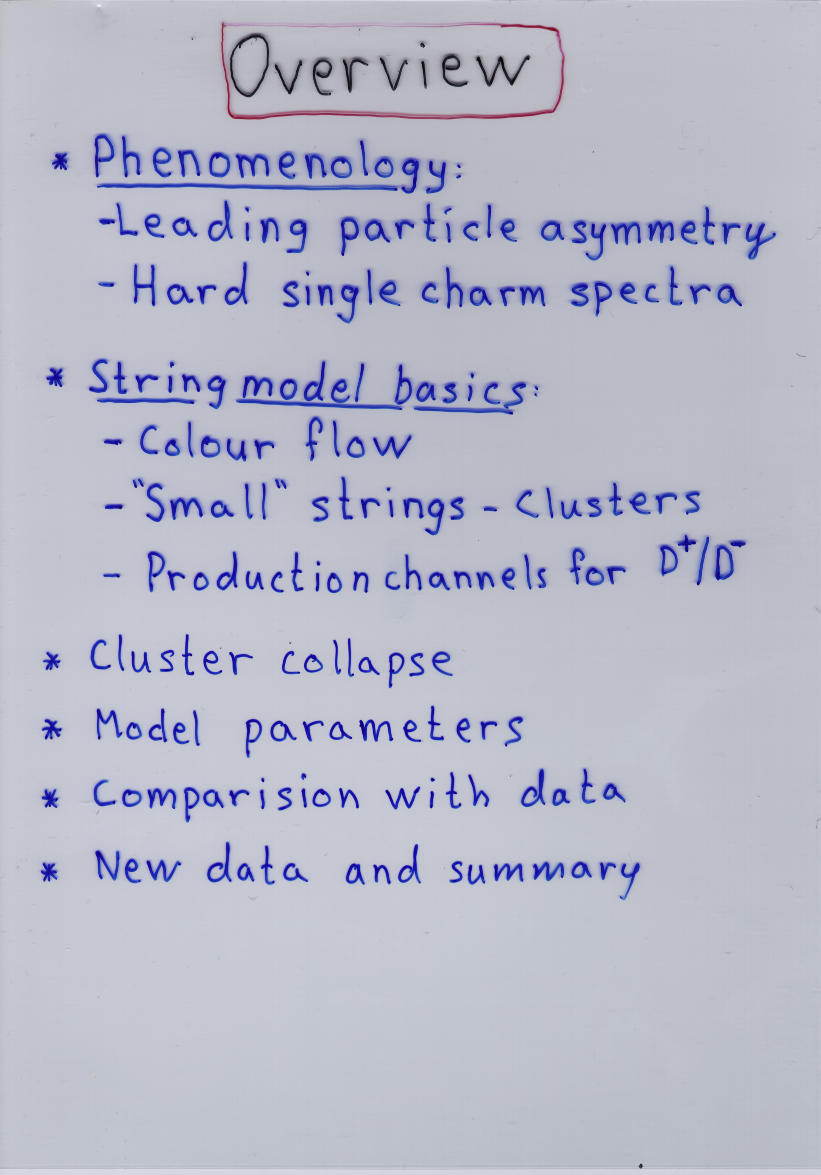 Overview
* Phenomenology:
-Leading particle asymmetry
- Hard single charm spectra
* String model basics:
- Colour flow
- "Small" strings - Clusters
- Production channels for D⁺/D⁻
* Cluster collapse
* Model parameters
* Comparision with data
* New data and summary